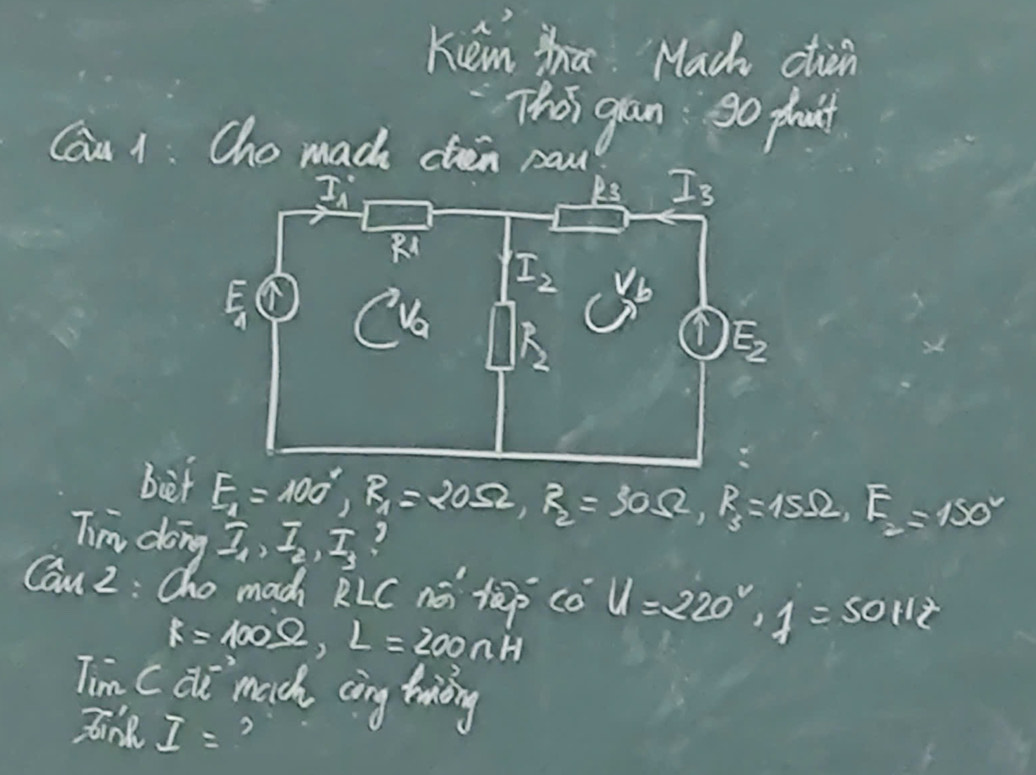 Kiểm tra: Mạch điện
Thời gian: 90 phút
Câu 1: Cho mạch điện sau:
I1 R3 I3
R1
I2
E1 Va Vb
R2 E2
Biết E1 = 100v, R1 = 20Ω, R2 = 30Ω, R3 = 15Ω, E2 = 150v
Tìm dòng I1, I2, I3?
Câu 2: Cho mạch RLC nối tiếp có U = 220v, f = 50Hz
R = 100Ω, L = 200nH
Tìm C để mạch cộng hưởng
Tính I = ?